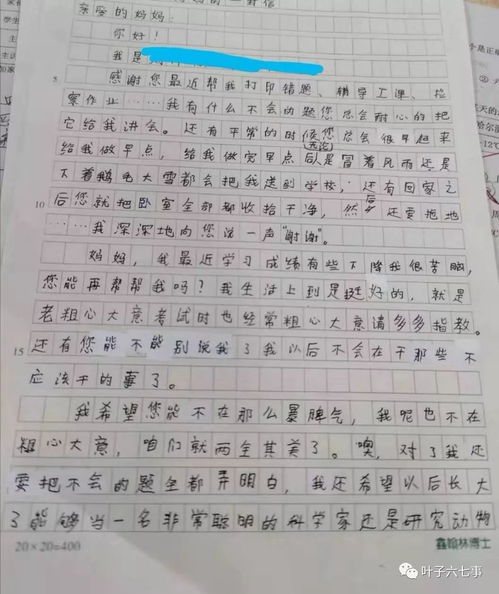 的一封信
亲爱的妈妈：
你好！
我是
感谢您最近帮我打印错题、辅导上课、检
5
察作业……我有什么不会的题您总会耐心的把
它给我讲会。还有平常的时候您总会很早起来
给我做早点，给我做完早点后无论是冒着风雨还是
下着鹅毛大雪都会把我送到学校，还有回家之
10
后您就把卧室全部都收拾干净，然后还要拖地
……我深深地向您说一声“谢谢”。
妈妈，我最近学习成绩有些下降我很苦脑，
您能再帮帮我吗？我生活上到是挺好的，就是
老粗心大意考试时也经常粗心大意请多多指教。
15
还有您能不能别说我了我以后不会在干那些不
应该干的事了。
我希望您能不在那么暴脾气，我呢也不在
粗心大意，咱们就两全其美了。噢，对了我还
要把不会的题全都弄明白，我还希望以后长大
了能够当一名非常聪明的科学家还是研究动物
20×20=400
鑫翰林博士
叶子六七事